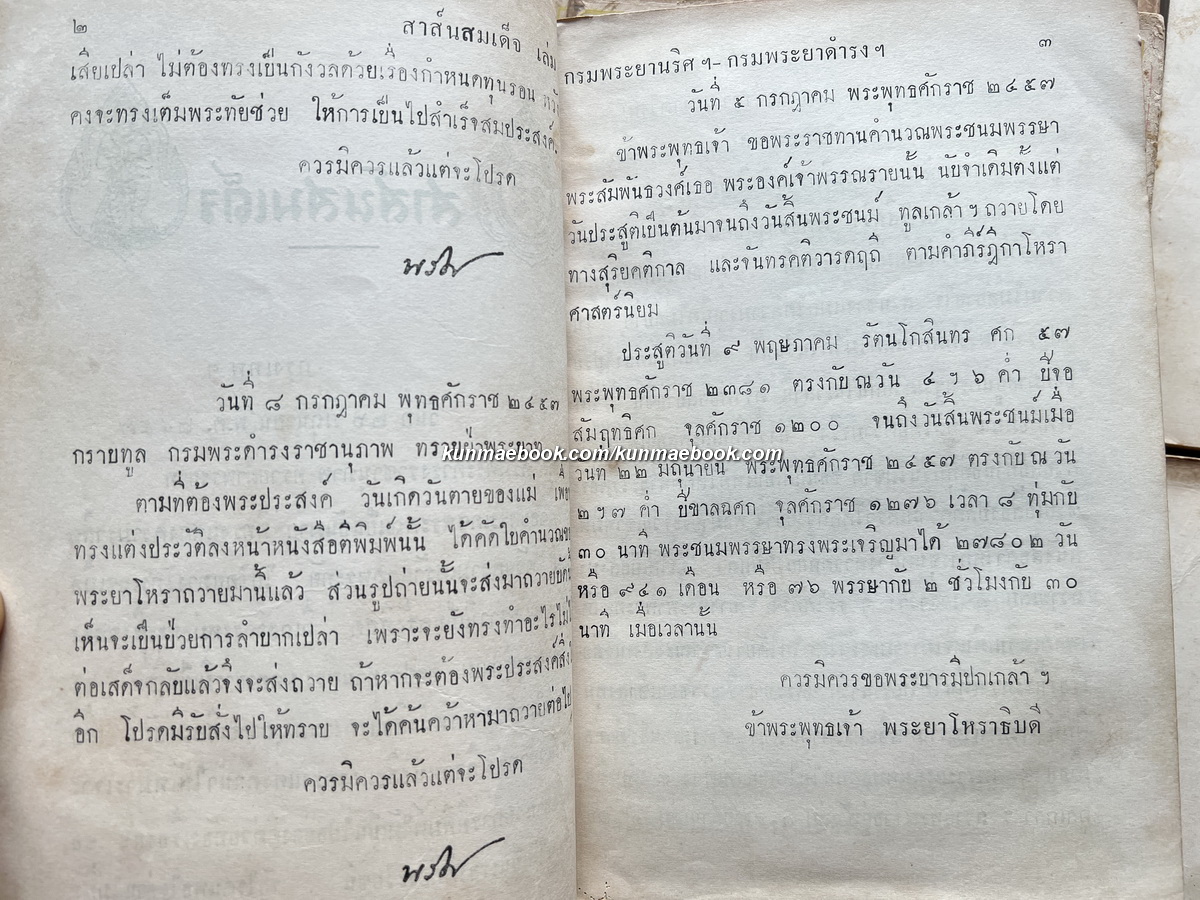 ๒
สาส์นสมเด็จ เล่ม
เสียเปล่า ไม่ต้องทรงเป็นกังวลด้วยเรื่องกำหนดทุนรอน
คงจะทรงเต็มพระทัยช่วย ให้การเป็นไปสำเร็จสมประสงค์
ควรมิควรแล้วแต่จะโปรด
นริศ
วันที่ ๘ กรกฎาคม พุทธศักราช ๒๔๕๗
กราบทูล กรมพระดำรงราชานุภาพ ทราบฝ่าพระบาท
ตามที่ต้องพระประสงค์ วันเกิดวันตายของแม่
ทรงแต่งประวัติลงหน้าหนังสือตีพิมพ์นั้น ได้คัดใบคำนวณ
พระยาโหราถวายมานี้แล้ว ส่วนรูปถ่ายนั้นจะส่งมาถวายบัดนี้
เห็นจะเป็นป่วยการลำบากเปล่า เพราะจะยังทรงทำอะไรไม่ได้
ต่อเสด็จกลับแล้วจึงจะส่งถวาย ถ้าหากจะต้องพระประสงค์สิ่ง
อีก โปรดมีรับสั่งไปให้ทราบ จะได้ค้นคว้าหามาถวายต่อไป
ควรมิควรแล้วแต่จะโปรด
นริศ
กรมพระยานริศ ฯ – กรมพระยาดำรง ฯ
๓
วันที่ ๕ กรกฎาคม พระพุทธศักราช ๒๔๕๗
ข้าพระพุทธเจ้า ขอพระราชทานคำนวณพระชนมพรรษา
พระสัมพันธวงศ์เธอ พระองค์เจ้าพรรณรายนั้น นับจำเดิมตั้งแต่
วันประสูติเป็นต้นมาจนถึงวันสิ้นพระชนม์ ทูลเกล้า ฯ ถวายโดย
ทางสุริยคติกาล และจันทรคติวารดฤถี ตามคำภีร์ฎีกาโหรา
ศาสตร์นิยม
ประสูติวันที่ ๙ พฤษภาคม รัตนโกสินทร ศก ๕๗
พระพุทธศักราช ๒๓๘๑ ตรงกับ ณ วัน ๔ ฯ ๖ ค่ำ ปีจอ
สัมฤทธิศก จุลศักราช ๑๒๐๐ จนถึงวันสิ้นพระชนม์เมื่อ
วันที่ ๒๒ มิถุนายน พระพุทธศักราช ๒๔๕๗ ตรงกับ ณ วัน
๒ ฯ ๗ ค่ำ ปีขาลฉศก จุลศักราช ๑๒๗๖ เวลา ๘ ทุ่มกับ
๓๐ นาที พระชนมพรรษาทรงพระเจริญมาได้ ๒๗๘๐๒ วัน
หรือ ๙๔๑ เดือน หรือ ๗๖ พรรษากับ ๒ ชั่วโมงกับ ๓๐
นาที เมื่อเวลานั้น
ควรมิควรขอพระบารมีปกเกล้า ฯ
ข้าพระพุทธเจ้า พระยาโหราธิบดี
kunmaebook.com/kunmaebook.com